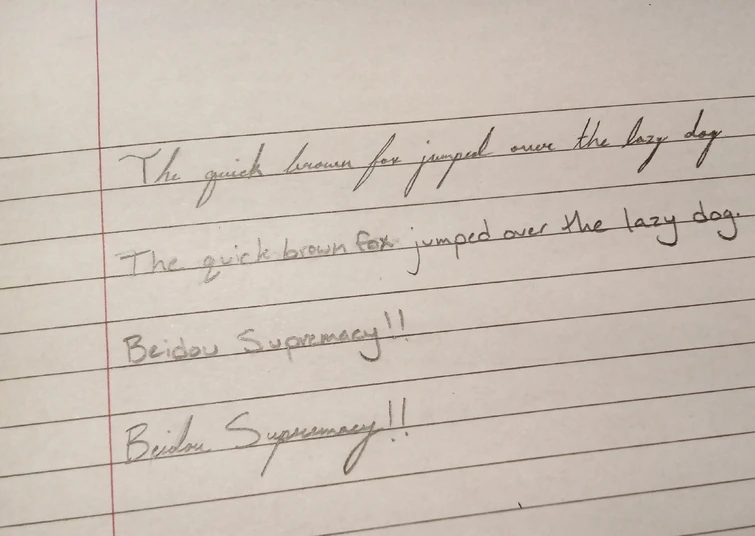 The quick brown fox jumped over the lazy dog
The quick brown fox jumped over the lazy dog.
Beidou Supremacy!!
Beidou Supremacy!!